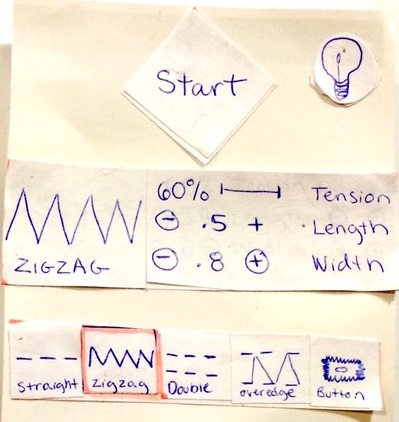 Start
60% Tension
- .5 + Length
- .8 + Width
ZIGZAG
Straight zigzag Double overedge Button